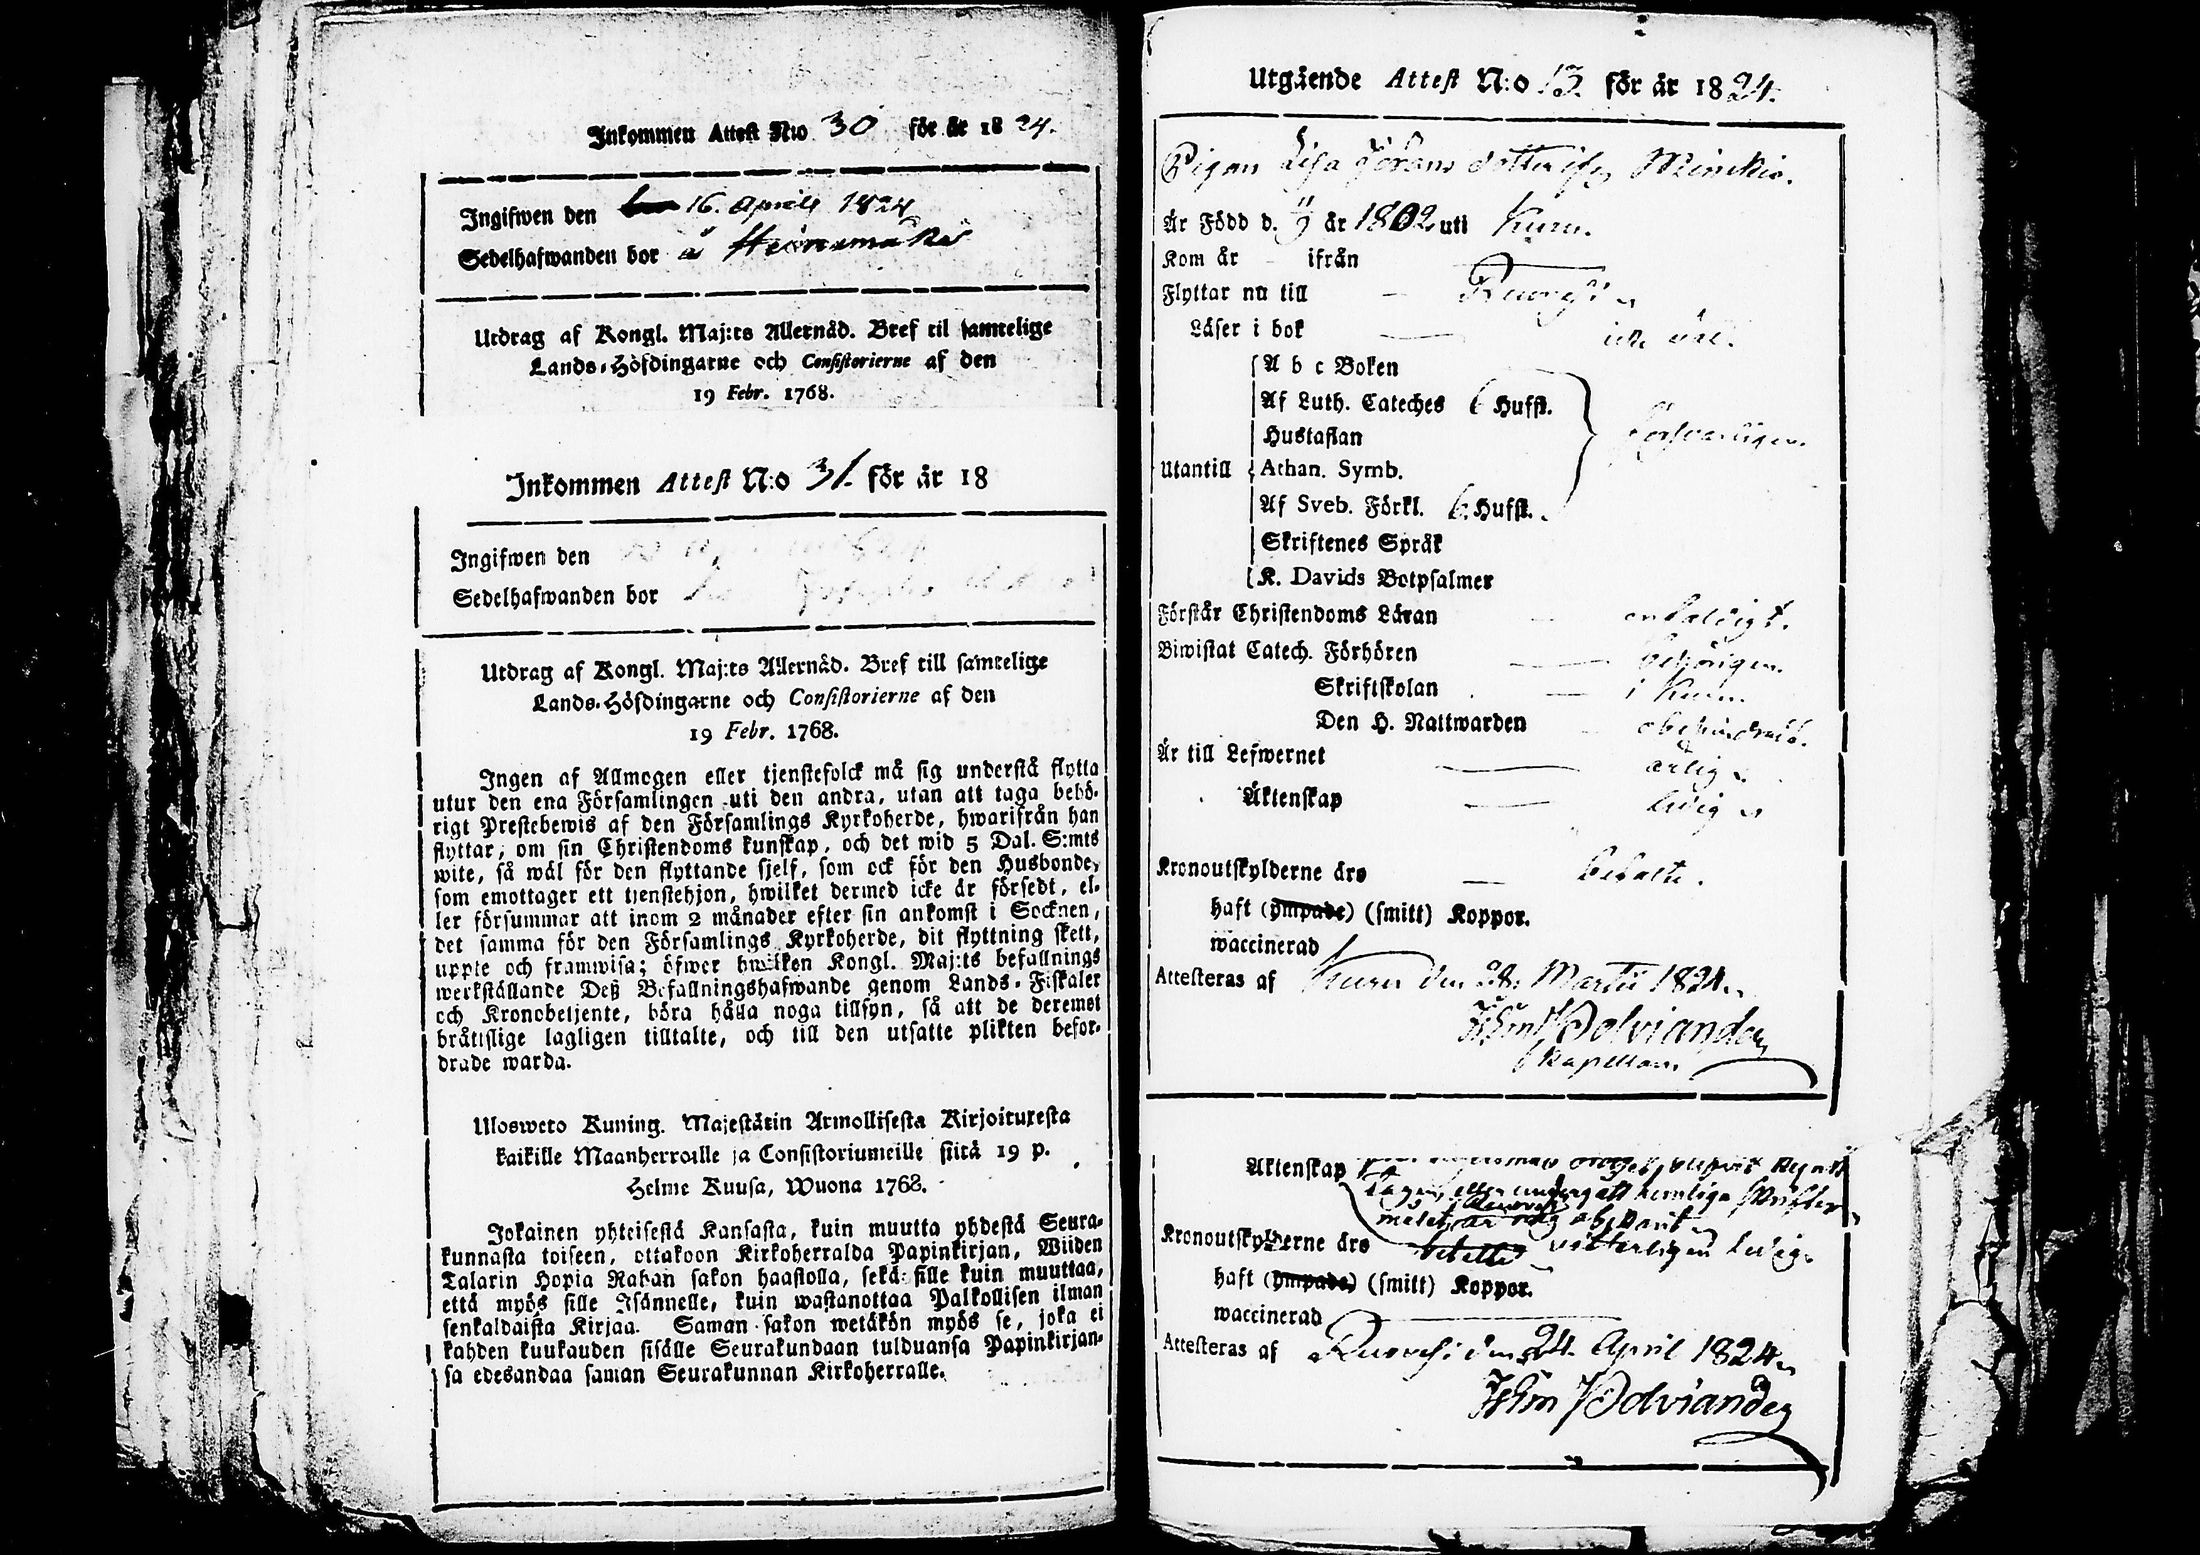 Inkommen Attest N:o 30 för år 18 24.
Ingifwen den 16. April 1824
Sedelhafwanden bor å Heinämäki
Utdrag af Kongl. Maj:ts Allernåd. Bref til samtelige
Lands-Höfdingarne och Consistorierne af den
19 Febr. 1768.
Inkommen Attest N:o 31. för år 18
Ingifwen den
Sedelhafwanden bor
Utdrag af Kongl. Maj:ts Allernåd. Bref till samtelige
Lands-Höfdingarne och Consistorierne af den
19 Febr. 1768.
Ingen af Allmogen eller tjenstefolck må sig understå flytta
utur den ena Församlingen uti den andra, utan att taga behö-
rigt Prestebewis af den Församlings Kyrkoherde, hwarifrån han
flyttar, om sin Christendoms kunskap, och det wid 5 Dal. S:mts
wite, så wäl för den flyttande sjelf, som ock för den Husbonde,
som emottager ett tjenstehjon, hwilket dermed icke är försedt, el-
ler försummar att inom 2 månader efter sin ankomst i Socknen,
det samma för den Församlings Kyrkoherde, dit flyttning skett,
uppte och framwisa; öfwer hwilken Kongl. Maj:ts befallnings
werkställande Deß Befallningshafwande genom Lands-Fiskaler
och Kronobetjente, böra hålla noga tillsyn, så att de deremot
bråtislige lagligen tilltalte, och till den utsatte plikten befor-
drade warda.
Ulosweto Kuning. Majestätin Armollisesta Kirjoituxesta
kaikille Maanherroille ja Consistoriumeille siitä 19 p.
Helme Kuusa, Wuona 1768.
Jokainen yhteisestä Kansasta, kuin muutta yhdestä Seura-
kunnasta toiseen, ottakoon Kirkoherralda Papinkirjan, Wiiden
Talarin Hopia Rahan sakon haastolla, sekä sille kuin muuttaa,
että myös sille Isännelle, kuin wastanottaa Palkollisen ilman
senkaldaista Kirjaa. Saman sakon wetäkön myös se, joka ei
kahden kuukauden sisälle Seurakundaan tulduansa Papinkirjan-
sa edesandaa saman Seurakunnan Kirkoherralle.
Utgäende Attest N:o 13. för år 1824.
Pigan Lisa Jörans dotter ifrån
Är Född d. 11/9 år 1802 uti Kuru.
Kom år - ifrån
Flyttar nu till - Ruovesi
Läser i bok icke väl.
A b c Boken
Af Luth. Cateches 6 Hufst.
Hustaflan försvarligen.
Utantill Athan. Symb.
Af Sveb. Förkl. 6 Hufst.
Skriftenes Språk
K. Davids Botpsalmer
Förstår Christendoms Läran enfaldigt.
Biwistat Catech. Förhören behörigen.
Skriftskolan i Kuru.
Den H. Nattwarden obehindrad.
Är till Lefwernet ärlig
Äktenskap ledig
Kronoutskylderne äro betalte.
haft (ympade) (smitt) Koppor.
waccinerad
Attesteras af Kuru den 28. Martii 1824.
Joh:n Polviander
Kapellan.
Äktenskap
Kronoutskylderne äro betalte vitterligen ledig.
haft (ympade) (smitt) Koppor.
waccinerad
Attesteras af Ruovesi den 24. April 1824
Joh:n Polviander